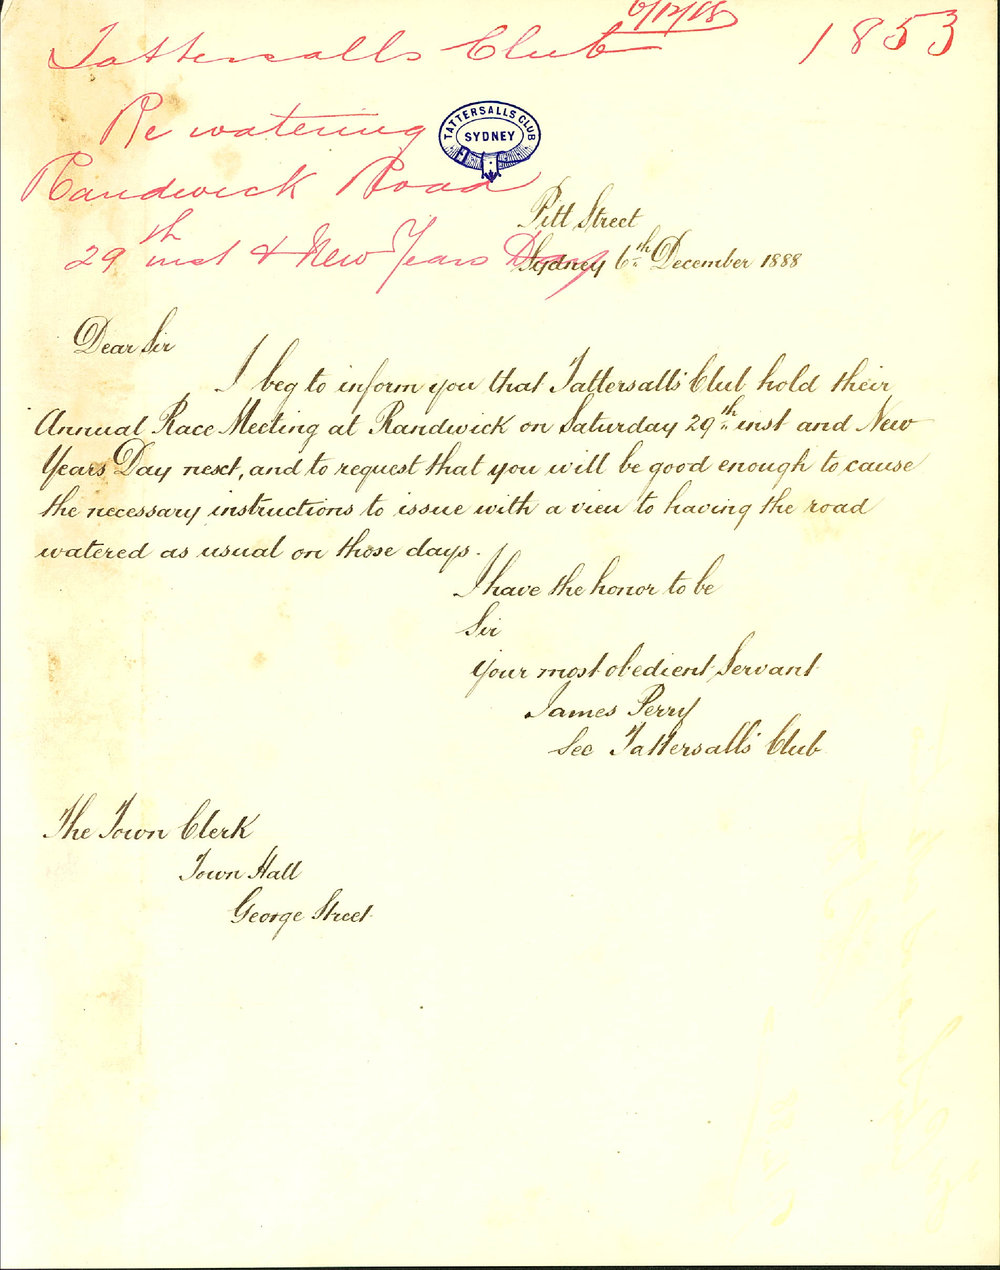 6/12/88
Tattersalls Club 1853
Re watering
Randwick Road
29th inst & New Years Day
TATTERSALLS CLUB
SYDNEY
Pitt Street
Sydney 6th December 1888
Dear Sir
I beg to inform you that Tattersall's Club hold their
Annual Race Meeting at Randwick on Saturday 29th inst and New
Years Day next, and to request that you will be good enough to cause
the necessary instructions to issue with a view to having the road
watered as usual on those days.
I have the honor to be
Sir
your most obedient Servant
James Perry
Sec Tattersall's Club
The Town Clerk
Town Hall
George Street